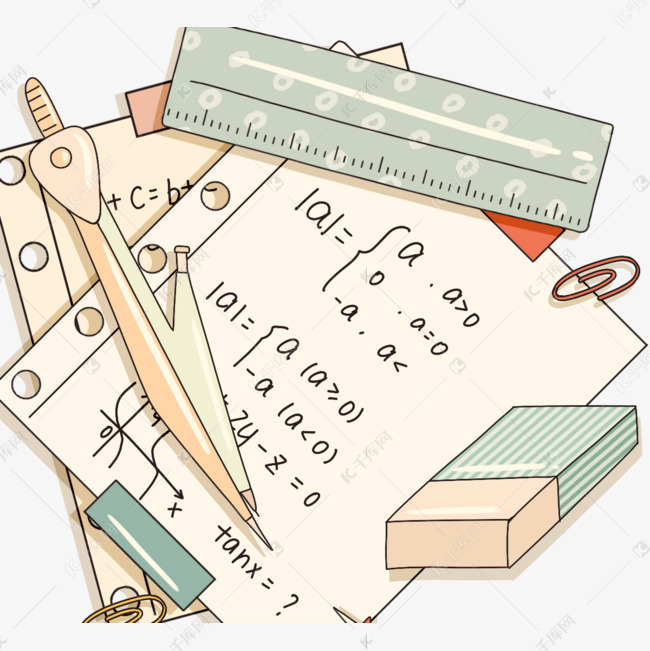 + C = b +
|a| = { a . a>0
0 . a=0
-a . a<
|a| = { a (a≥0)
-a (a<0)
2y - z = 0
0
x
tanx = ?